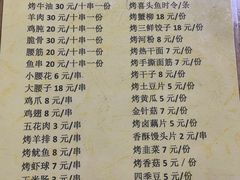 烤牛油 30元/十串一份
羊肉 30元/十串一份
鸡肫 20元/十串一份
脆骨 30元/十串一份
腰筋 20元/十串一份
鱼串 20元/十串一份
小腰花 6元/串
大腰子 18元/串
鸡爪 8元/串
鸡翅 8元/串
五花肉 3元/串
烤羊排 8元/串
烤鱿鱼 8元/串
烤虾球 7元/串
烤喜头鱼时令/条
烤蟹柳 18元/份
烤三鲜饺子 18元/份
烤河粉 8元/份
烤热干面 7元/份
烤手撕面筋 7元/份
烤干子 8元/份
烤土豆片 5元/份
烤黄瓜 5元/份
金针菇 7元/份
烤卤藕片 2元/串
香酥馒头片 2元/串
烤韭菜 7元/份
烤香菇 5元/份
四季豆 5元/份